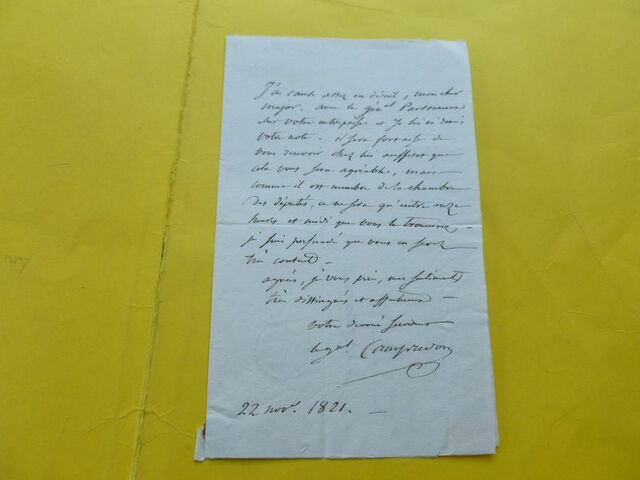 J'ai causé assez en détail, mon cher
major, avec le génal Partouneaux
sur votre entreprise et je lui ai remis
votre note. il sera fort aise de
vous recevoir chez lui aussitot que
cela vous sera agréable, mais
comme il est membre de la chambre
des députés, ce ne sera qu'entre onze
heures et midi que vous le trouverez
je suis persuadé que vous en serez
très content —
agréez, je vous prie, mes sentiments
très distingués et affectueux —
votre devoué serviteur
le gal. Campredon
22 nov. 1821. —